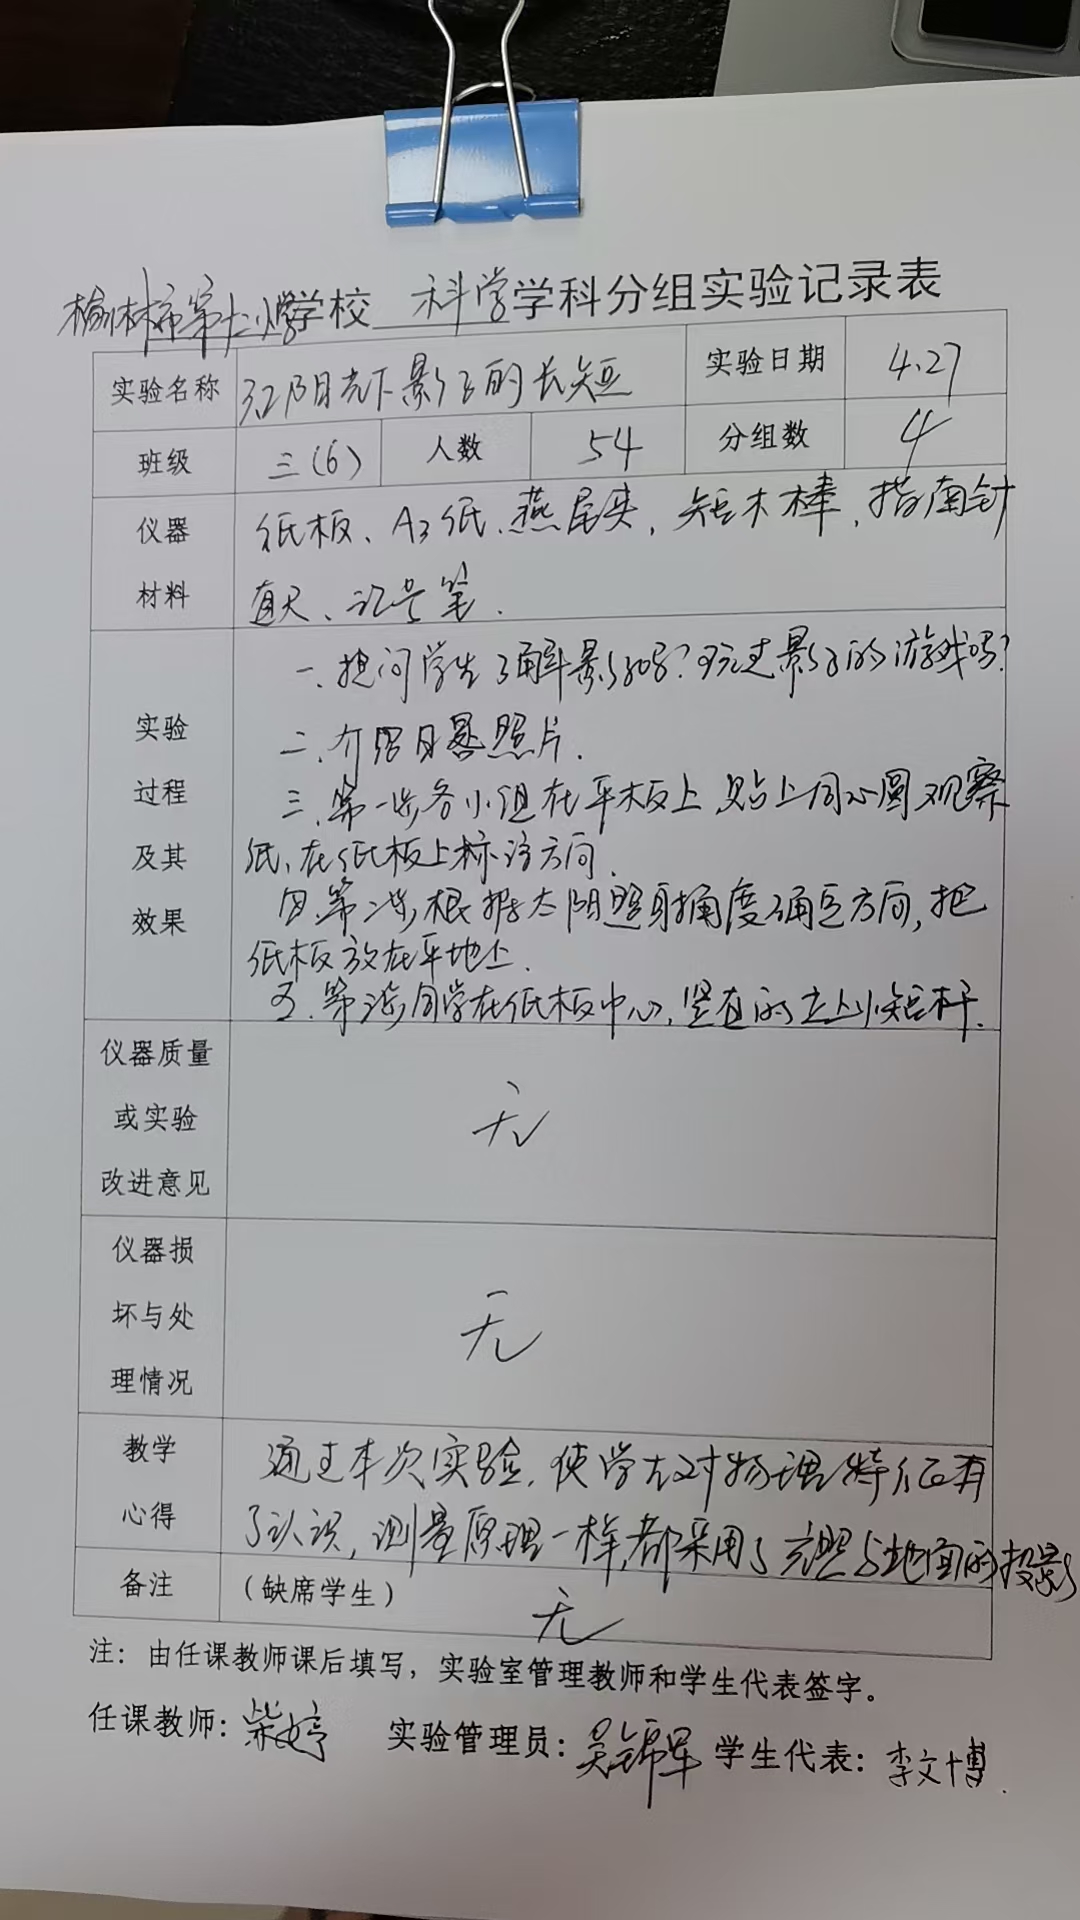 榆林市第十二小学学校 科学学科分组实验记录表
实验名称 在阳光下影子的长短 实验日期 4.27
班级 三(6) 人数 54 分组数 4
仪器材料 纸板、A3纸、燕尾夹、短木棒、指南针
直尺、记号笔.
实验过程及其效果 一、提问学生了解影子吗?玩过影子的游戏吗?
二、介绍日晷照片.
三、第一步各小组在平板上贴上同心圆观察
纸、在纸板上标注方向.
四.第二步,根据太阳照射角度确定方向,把
纸板放在平地上.
五.第三步同学在纸板中心,竖直的立上小短杆.
仪器质量或实验改进意见 无
仪器损坏与处理情况 无
教学心得 通过本次实验,使学生对物理特征有
了认识,测量原理一样,都采用了光照与地面的投影
备注 (缺席学生) 无
注：由任课教师课后填写，实验室管理教师和学生代表签字。
任课教师：柴婷 实验管理员：吴锦军 学生代表：李文博.